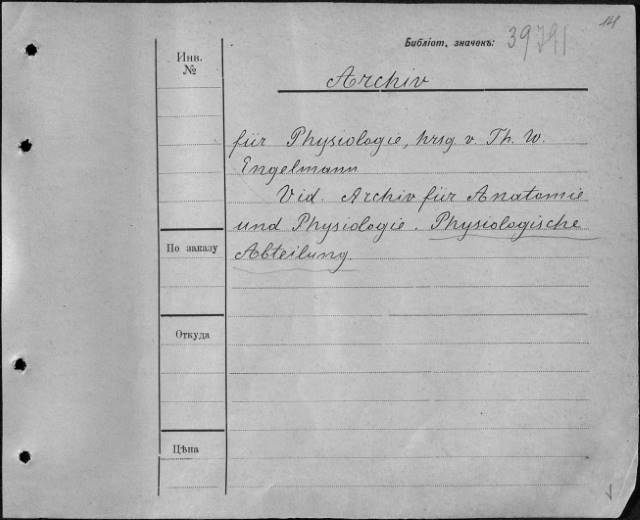 14
Библіот. значекъ: 39791
Инв.
№
Archiv
für Physiologie, hrsg. v. Th. W.
Engelmann
Vid. Archiv für Anatomie
und Physiologie. Physiologische
Abteilung.
По заказу
Откуда
Цѣна